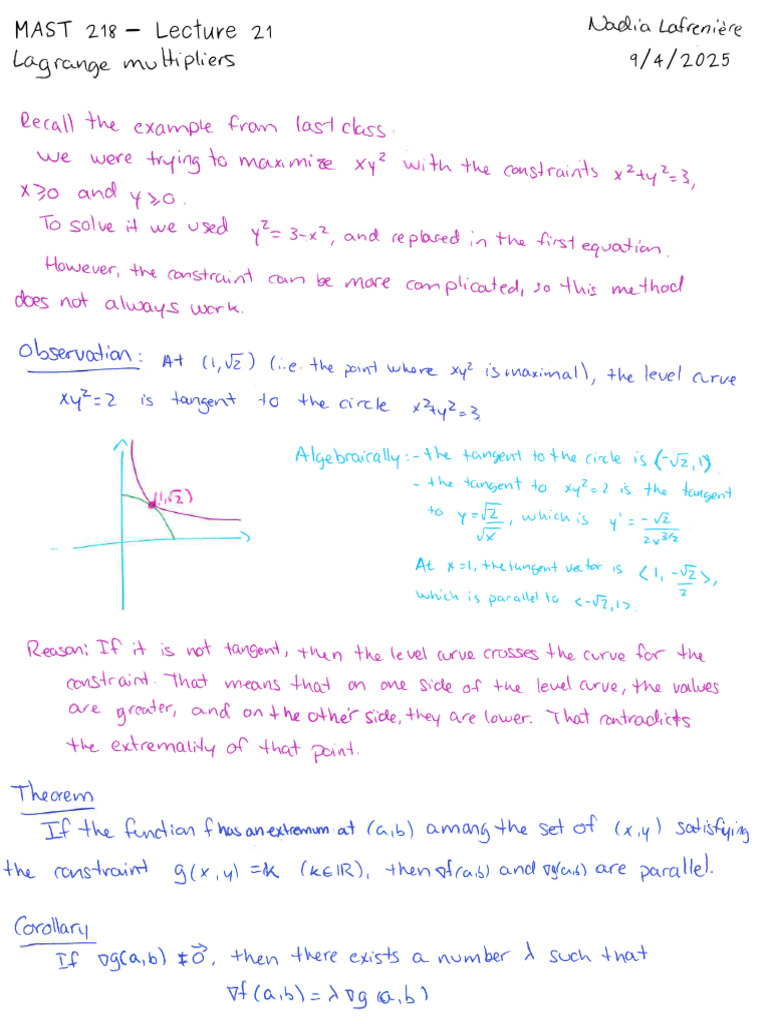 MAST 218 - Lecture 21
Nadia Lafrenière
Lagrange multipliers
9/4/2025
Recall the example from last class.
We were trying to maximize xy² with the constraints x²+y²=3,
x≥0 and y≥0.
To solve it we used y²=3-x², and replaced in the first equation.
However, the constraint can be more complicated, so this method
does not always work.
Observation: At (1,√2) (i.e. the point where xy² is maximal), the level curve
xy²=2 is tangent to the circle x²+y²=3.
Algebraically: - the tangent to the circle is (-√2,1)
- the tangent to xy²=2 is the tangent
to y=√2/√x, which is y'=-√2/2x^{3/2}
At x=1, the tangent vector is <1, -√2/2>,
which is parallel to <-√2,1>.
(1,√2)
Reason: If it is not tangent, then the level curve crosses the curve for the
constraint. That means that on one side of the level curve, the values
are greater, and on the other side, they are lower. That contradicts
the extremality of that point.
Theorem
If the function f has an extremum at (a,b) among the set of (x,y) satisfying
the constraint g(x,y)=k (k∈ℝ), then ∇f(a,b) and ∇g(a,b) are parallel.
Corollary
If ∇g(a,b)≠0⃗, then there exists a number λ such that
∇f(a,b)=λ∇g(a,b)